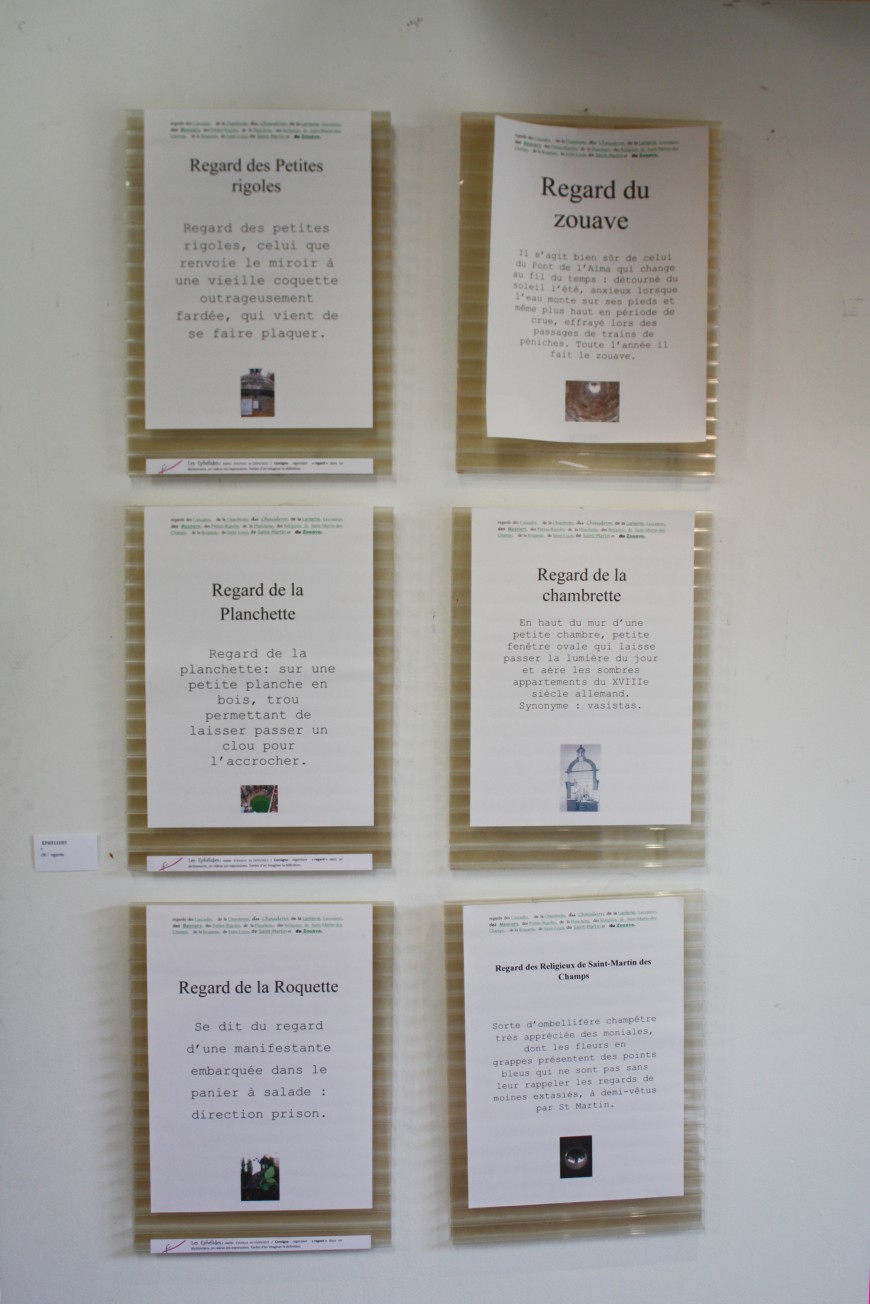 Regard des Petites
rigoles
Regard des petites
rigoles, celui que
renvoie le miroir à
une vieille coquette
outrageusement
fardée, qui vient de
se faire plaquer.
Regard du
zouave
Il s'agit bien sûr de celui
du Pont de l'Alma qui change
au fil du temps : détourné du
soleil l'été, anxieux lorsque
l'eau monte sur ses pieds et
même plus haut en période de
crue, effrayé lors des
passages de trains de
péniches. Toute l'année il
fait le zouave.
Regard de la
Planchette
Regard de la
planchette: sur une
petite planche en
bois, trou
permettant de
laisser passer un
clou pour
l'accrocher.
Regard de la
chambrette
En haut du mur d'une
petite chambre, petite
fenêtre ovale qui laisse
passer la lumière du jour
et aère les sombres
appartements du XVIIIe
siècle allemand.
Synonyme : vasistas.
Regard de la Roquette
Se dit du regard
d'une manifestante
embarquée dans le
panier à salade :
direction prison.
Regard des Religieux de Saint-Martin des
Champs
Sorte d'ombellifère champêtre
très appréciée des moniales,
dont les fleurs en
grappes présentent des points
bleus qui ne sont pas sans
leur rappeler les regards de
moines extasiés, à demi-vêtus
par St Martin.